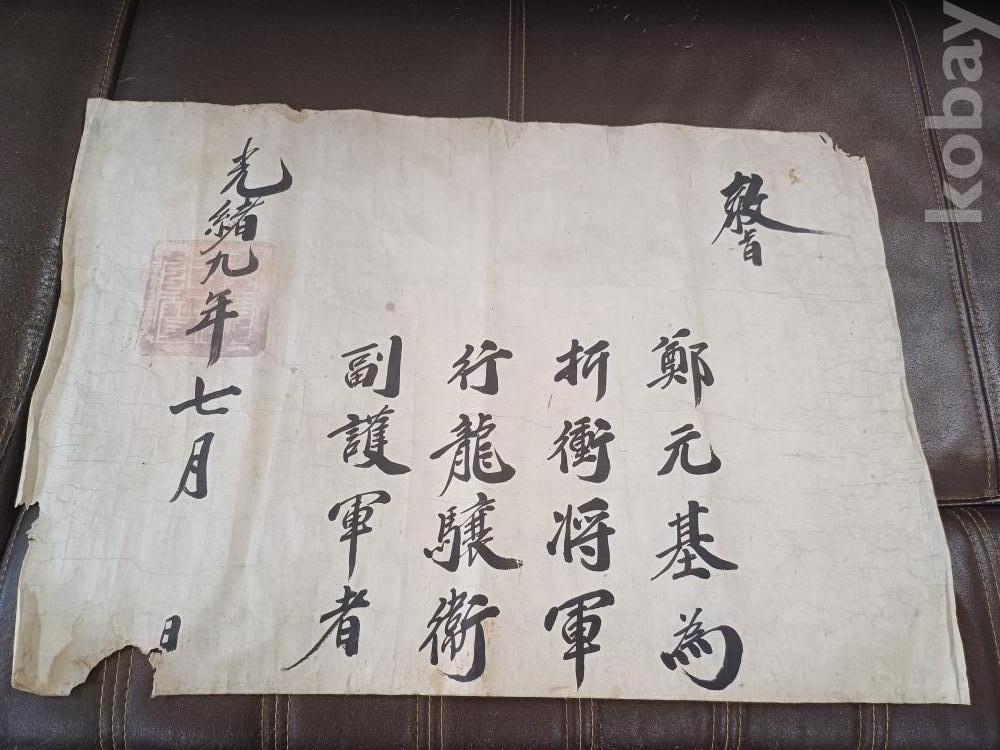 敎旨
鄭元基為
折衝将軍
行龍驤衛
副護軍者
光緒九年七月 日
kobay